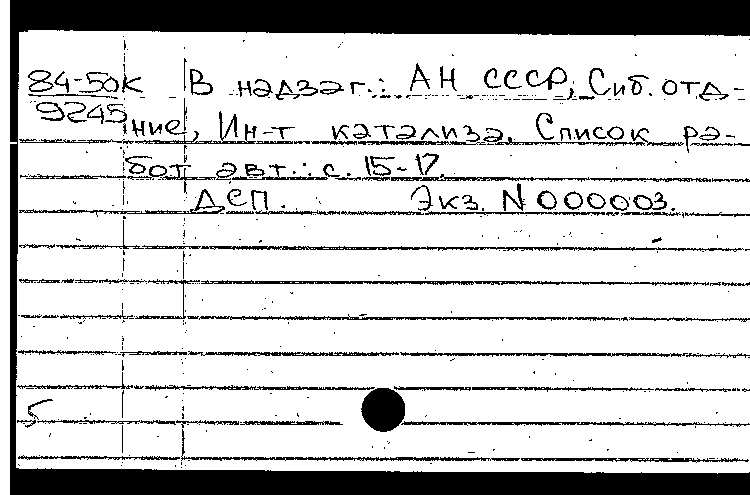 84-50к В надзаг.: АН СССР, Сиб. отд-
9245 ние, Ин-т катализа. Список ра-
бот авт.: с. 15-17.
Деп. Экз. N 000003.
5